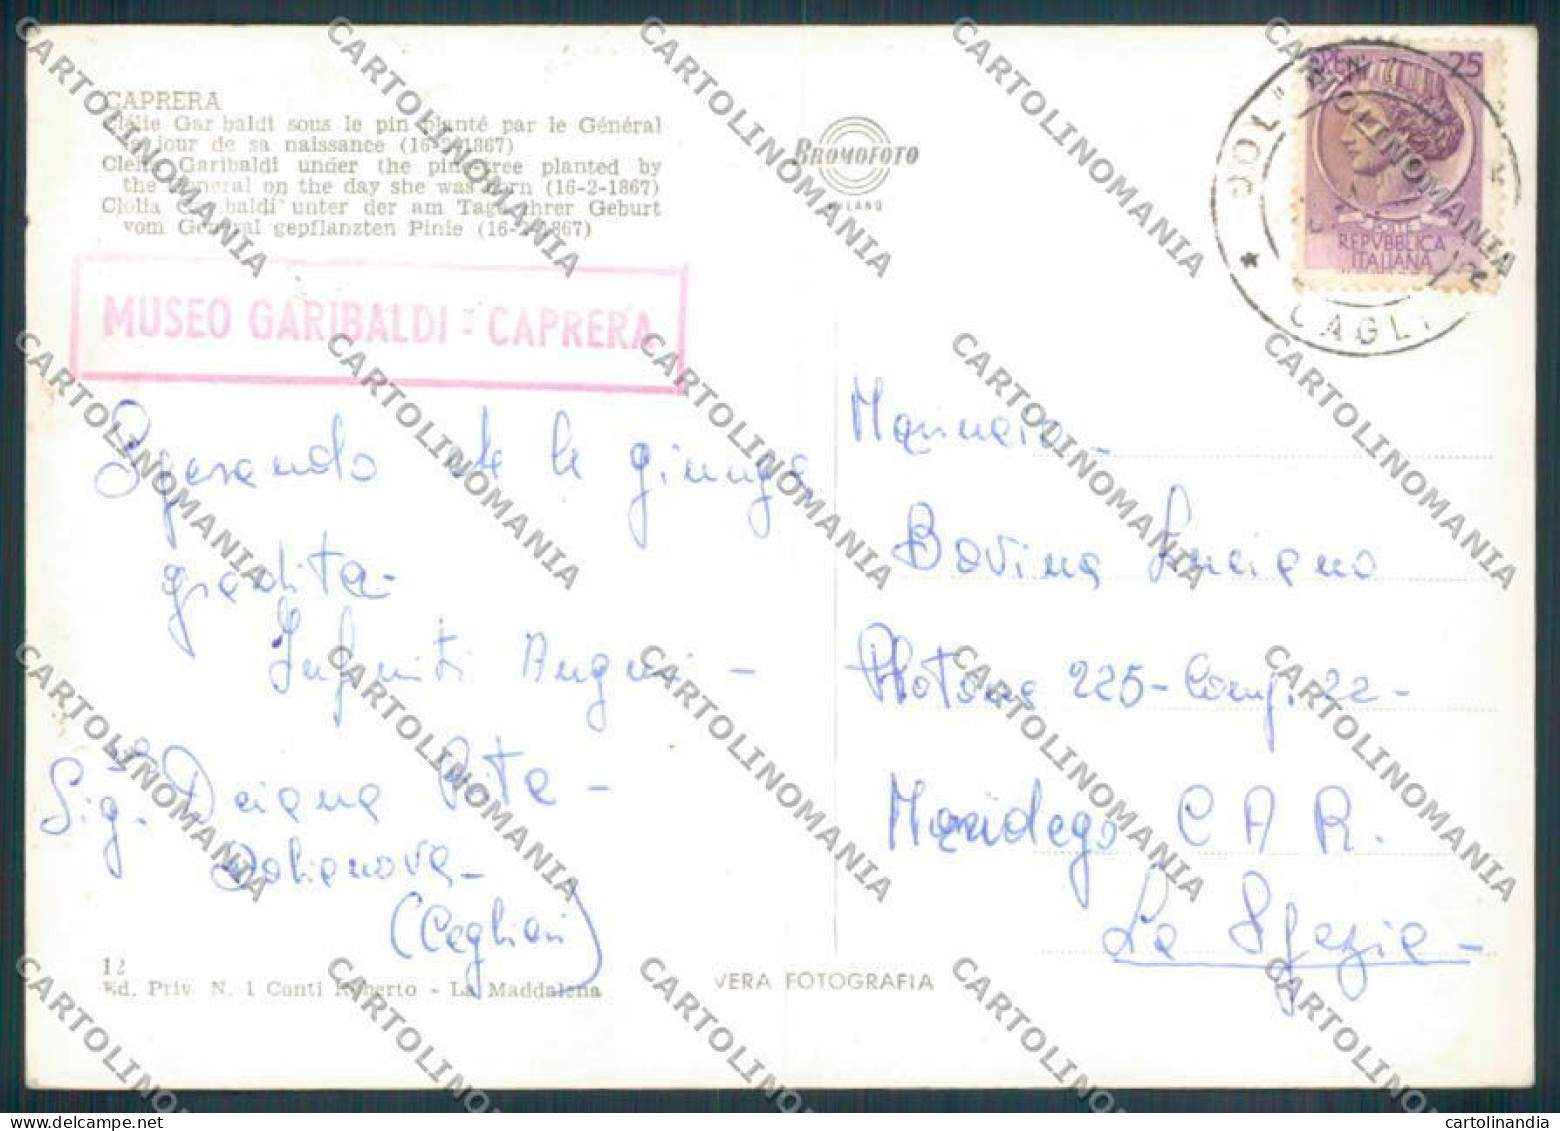 CAPRERA
Clélie Garibaldi sous le pin planté par le Général
le jour de sa naissance (16-2-1867)
Clelia Garibaldi under the pine-tree planted by
the General on the day she was born (16-2-1867)
Clolia Garibaldi unter der am Tage ihrer Geburt
vom General gepflanzten Pinie (16-2-1867)
MUSEO GARIBALDI - CAPRERA
Sperando che le giunga
gradita-
Infiniti Auguri -
Sig.na Deiana Rita -
Dolianova -
(Cagliari)
12
Ed. Priv. N. 1 Canti Roberto - La Maddalena
BROMOFOTO
MILANO
VERA FOTOGRAFIA
25
POSTE
REPVBBLICA
ITALIANA
CAGLI
Marinaio -
Bovina Luciano
Plotone 225 - Comp. 22 -
Maridepo C A R.
La Spezia -
CARTOLINOMANIA
cartolinandia